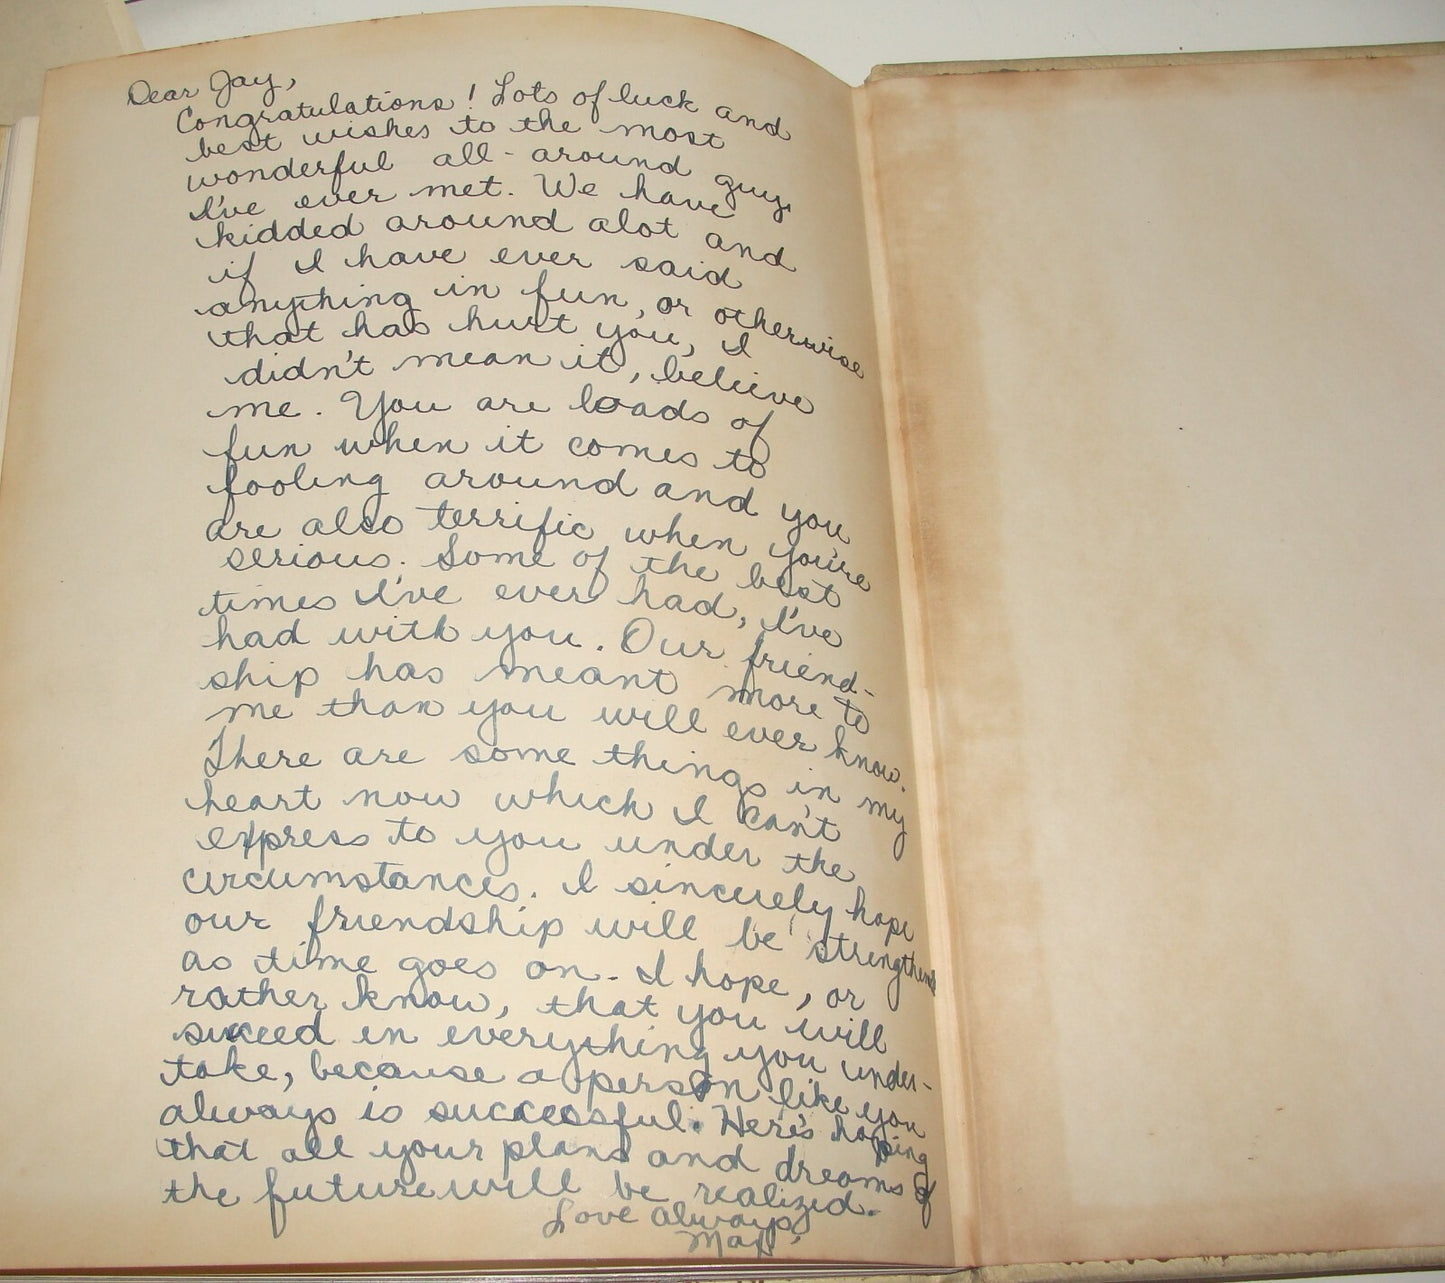 Dear Jay,
Congratulations! Lots of luck and
best wishes to the most
wonderful all-around guy
I've ever met. We have
kidded around alot and
if I have ever said
anything in fun, or otherwise
that has hurt you, I
didn't mean it, believe
me. You are loads of
fun when it comes to
fooling around and you
are also terrific when you're
serious. Some of the best
times I've ever had, I've
had with you. Our friend-
ship has meant more to
me than you will ever know.
There are some things in my
heart now which I can't
express to you under the
circumstances. I sincerely hope
our friendship will be strengthened
as time goes on. I hope, or
rather know, that you will
succeed in everything you under-
take, because a person like you
always is successful. Here's hoping
that all your plans and dreams of
the future will be realized.
Love always,